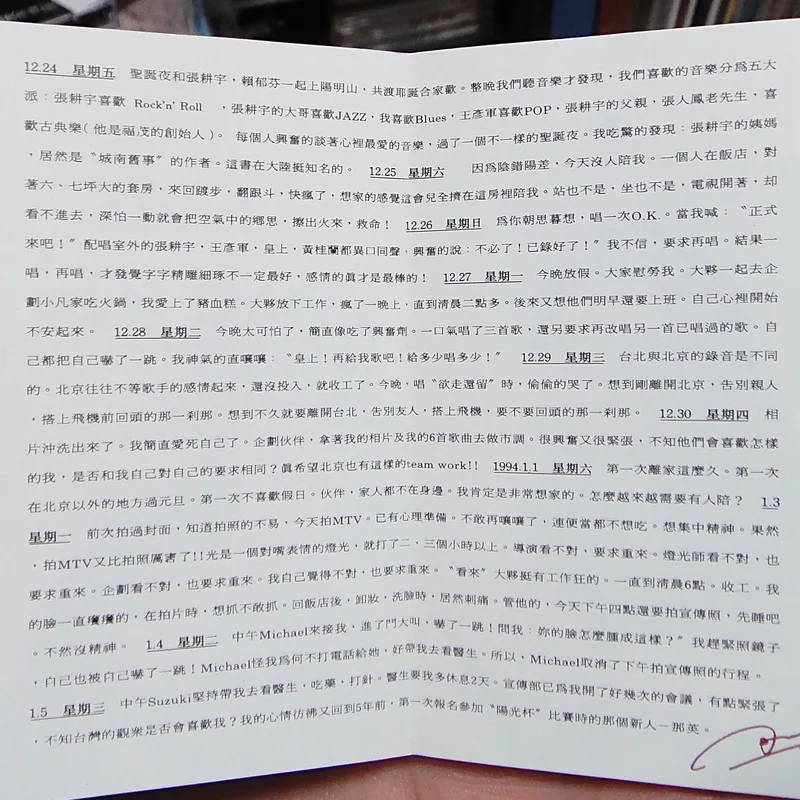 12.24 星期五 聖誕夜和張耕宇，賴郁芬一起上陽明山，共渡耶誕合家歡。整晚我們聽音樂才發現，我們喜歡的音樂分為五大
派：張耕宇喜歡 Rock'n' Roll ，張耕宇的大哥喜歡JAZZ，我喜歡Blues，王彥軍喜歡POP，張耕宇的父親，張人鳳老先生，喜
歡古典樂(他是福茂的創始人)。每個人興奮的談著心裡最愛的音樂，過了一個不一樣的聖誕夜。我吃驚的發現：張耕宇的姨媽
，居然是〝城南舊事〞的作者。這書在大陸挺知名的。 12.25 星期六 因為陰錯陽差，今天沒人陪我。一個人在飯店，對
著六、七坪大的套房，來回踱步，翻跟斗，快瘋了，想家的感覺這會兒全擠在這房裡陪我。站也不是，坐也不是，電視開著，却
看不進去，深怕一動就會把空氣中的鄉思，擦出火來，救命！ 12.26 星期日 為你朝思暮想，唱一次O.K.。當我喊：〝正式
來吧！〞配唱室外的張耕宇，王彥軍，皇上，黃桂蘭都異口同聲，興奮的說：不必了！已錄好了！〞我不信，要求再唱。結果一
唱，再唱，才發覺字字精雕細琢不一定最好，感情的真才是最棒的！ 12.27 星期一 今晚放假。大家慰勞我。大夥一起去企
劃小凡家吃火鍋，我愛上了豬血糕。大夥放下工作，瘋了一晚上，直到清晨二點多。後來又想他們明早還要上班。自己心裡開始
不安起來。 12.28 星期二 今晚太可怕了，簡直像吃了興奮劑。一口氣唱了三首歌，還另要求再改唱另一首已唱過的歌。自
己都把自己嚇了一跳。我神氣的直嚷嚷：〝皇上！再給我歌吧！給多少唱多少！〞 12.29 星期三 台北與北京的錄音是不同
的。北京往往不等歌手的感情起來，還沒投入，就收工了。今晚，唱〝欲走還留〞時，偷偷的哭了。想到剛離開北京，告別親人
，搭上飛機前回頭的那一剎那。想到不久就要離開台北，告別友人，搭上飛機，要不要回頭的那一剎那。 12.30 星期四 相
片沖洗出來了。我簡直愛死自己了。企劃伙伴，拿著我的相片及我的6首歌曲去做市調。很興奮又很緊張，不知他們會喜歡怎樣
的我，是否和我自己對自己的要求相同？真希望北京也有這樣的team work!! 1994.1.1 星期六 第一次離家這麼久。第一次
在北京以外的地方過元旦。第一次不喜歡假日。伙伴，家人都不在身邊。我肯定是非常想家的。怎麼越來越需要有人陪？ 1.3
星期一 前次拍過封面，知道拍照的不易，今天拍MTV。已有心理準備。不敢再嚷嚷了，連便當都不想吃。想集中精神。果然
，拍MTV又比拍照厲害了!!光是一個對嘴表情的燈光，就打了二、三個小時以上。導演看不對，要求重來。燈光師看不對，也
要求重來。企劃看不對，也要求重來。我自己覺得不對，也要求重來。〝看來〞大夥挺有工作狂的。一直到清晨6點。收工。我
的臉一直癢癢的，在拍片時，想抓不敢抓。回飯店後，卸妝，洗臉時，居然刺痛。管他的，今天下午四點還要拍宣傳照，先睡吧
。不然沒精神。 1.4 星期二 中午Michael來接我，進了門大叫，嚇了一跳！問我：妳的臉怎麼腫成這樣？〞我趕緊照鏡子
，自己也被自己嚇了一跳！Michael怪我為何不打電話給她，好帶我去看醫生。所以，Michael取消了下午拍宣傳照的行程。
1.5 星期三 中午Suzuki堅持帶我去看醫生，吃藥，打針。醫生要我多休息2天。宣傳部已為我開了好幾次的會議，有點緊張了
，不知台灣的觀眾是否會喜歡我？我的心情彷彿又回到5年前，第一次報名參加〝陽光杯〞比賽時的那個新人－那英。